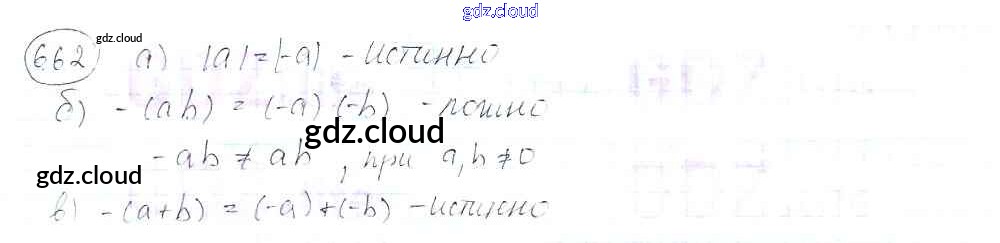 gdz.cloud
gdz.cloud
662 а) |a| = |-a| - истинно
б) -(ab) = (-a) (-b) - ложно
gdz.cloud
-ab ≠ ab, при a, b ≠ 0
gdz.cloud
в) -(a+b) = (-a)+(-b) - истинно